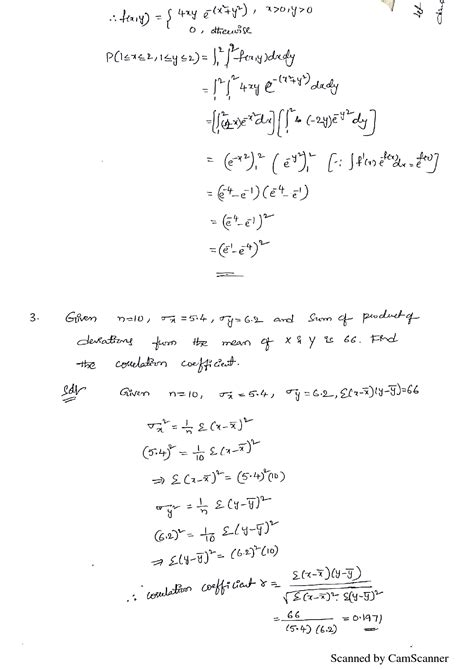 ∴ f(x,y) = { 4xy e^-(x²+y²), x>0, y>0
0, otherwise
P(1≤x≤2, 1≤y≤2) = ∫₁² ∫₁² f(x,y) dx dy
= ∫₁² ∫₁² 4xy e^-(x²+y²) dx dy
= [∫₁² (-2x) e^-x² dx] [∫₁² (-2y) e^-y² dy]
= (e^-x²)₁² (e^-y²)₁² [∵ ∫ f'(x) e^f(x) dx = e^f(x)]
= (e^-4 - e^-1) (e^-4 - e^-1)
= (e^-4 - e^-1)²
= (e^-1 - e^-4)²
3. Given n=10, σx = 5.4, σy = 6.2 and sum of product of
deviations from the mean of X & Y is 66. Find
the correlation coefficient.
Sol: Given n=10, σx = 5.4, σy = 6.2, Σ(x-x̄)(y-ȳ)=66
σx² = 1/n Σ(x-x̄)²
(5.4)² = 1/10 Σ(x-x̄)²
⇒ Σ(x-x̄)² = (5.4)²(10)
σy² = 1/n Σ(y-ȳ)²
(6.2)² = 1/10 Σ(y-ȳ)²
⇒ Σ(y-ȳ)² = (6.2)²(10)
∴ correlation coefficient r = Σ(x-x̄)(y-ȳ) / √(Σ(x-x̄)² · Σ(y-ȳ)²)
= 66 / (5.4)(6.2) = 0.1971
Scanned by CamScanner